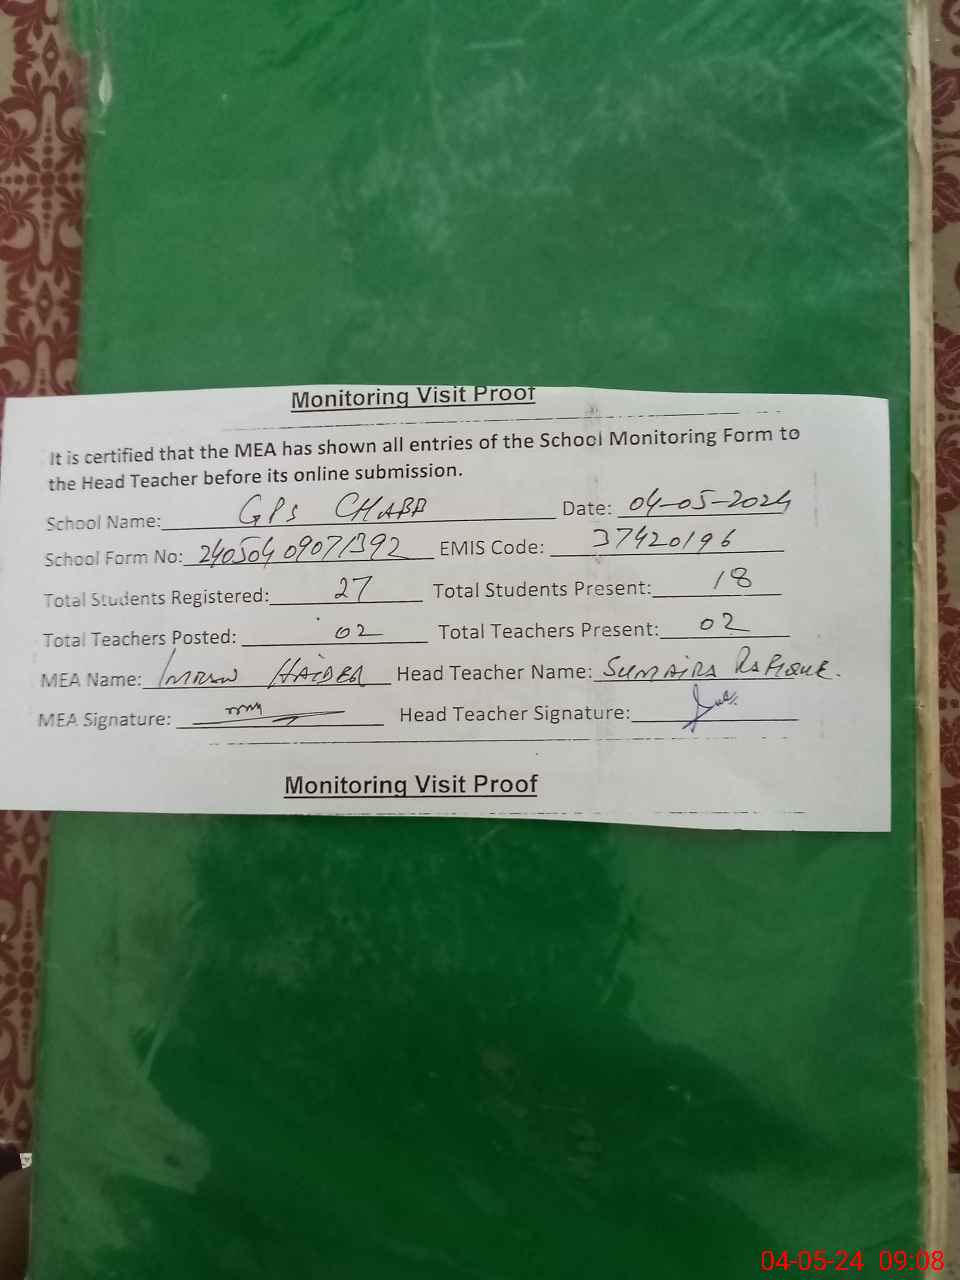 Monitoring Visit Proof
It is certified that the MEA has shown all entries of the School Monitoring Form to
the Head Teacher before its online submission.
School Name: GPS CHABB Date: 04-05-2024
School Form No: 24050409071392 EMIS Code: 37420196
Total Students Registered: 27 Total Students Present: 18
Total Teachers Posted: 02 Total Teachers Present: 02
MEA Name: IMRAN HAIDER Head Teacher Name: SUMAIRA RAFIQUE.
MEA Signature: Head Teacher Signature:
Monitoring Visit Proof
04-05-24 09:08